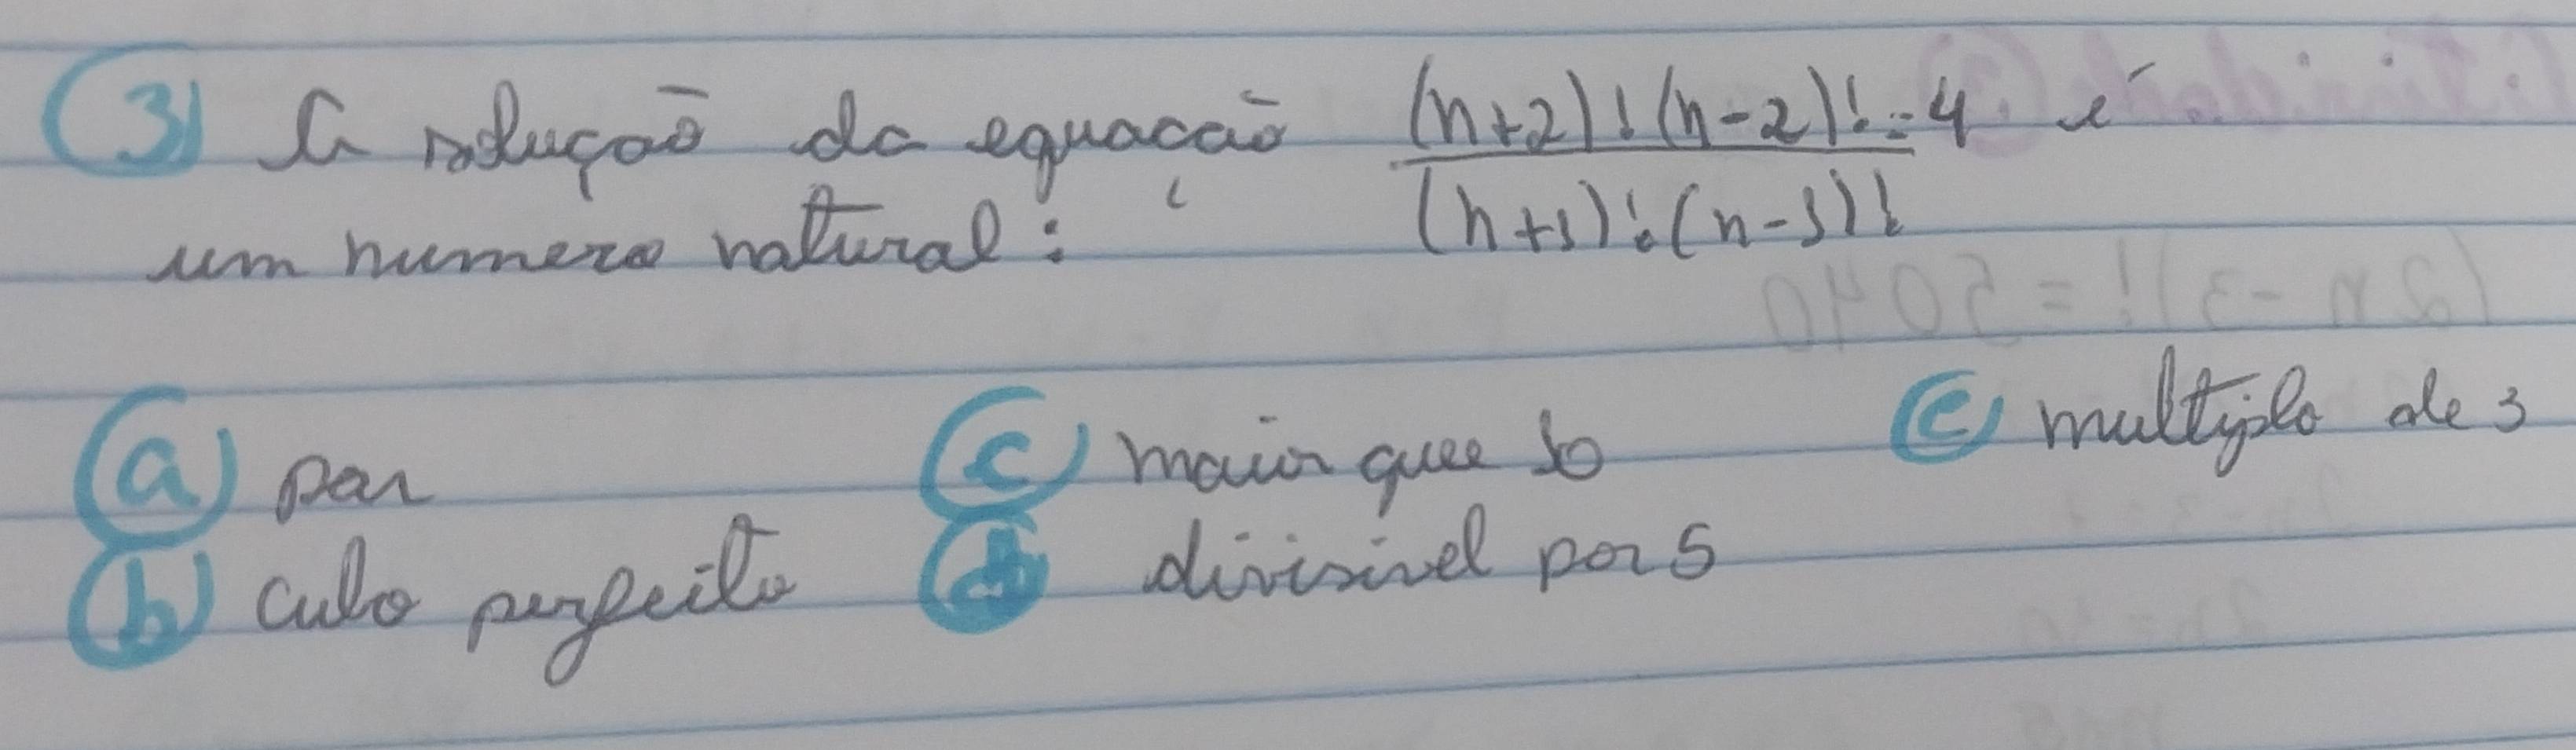 3) A solução da equação (n+2)!(n-2)! = 4 é
(n+1)!(n-1)!
um numero natural:
a) par
c) maior que 10
e) multiplo de 3
b) cubo perfeito
d) divisivel por 5
(2n-3)! = 5040